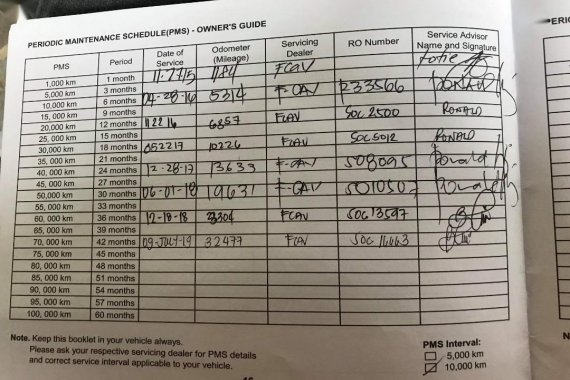 PERIODIC MAINTENANCE SCHEDULE(PMS) - OWNER'S GUIDE
PMS Period Date of Service Odometer (Mileage) Servicing Dealer RO Number Service Advisor Name and Signature
1,000 km 1 month FCAV
5,000 km 3 months
10,000 km 6 months 04-28-16 5314 F-CAV
15, 000 km 9 months
20, 000 km 12 months 6857 FCAV SOC 2500 RONALD
25, 000 km 15 months
30, 000 km 18 months 052217 10226 FCAV SOC 5012 RONALD
35, 000 km 21 months
40, 000 km 24 months 12-28-17 13633 F-CAV 508095 Ronald
45, 000 km 27 months
50,000 km 30 months 06-01-18 19631 F-CAV
55, 000 km 33 months
60, 000 km 36 months 12-18-18 FCAV SOC 13597
65, 000 km 39 months
70, 000 km 42 months 09-JULY-19 32477 FCAV
75, 000 km 45 months
80, 000 km 48 months
85, 000 km 51 months
90, 000 km 54 months
95, 000 km 57 months
100, 000 km 60 months
Note. Keep this booklet in your vehicle always.
Please ask your respective servicing dealer for PMS details
and correct service interval applicable to your vehicle.
PMS Interval:
5,000 km
10,000 km